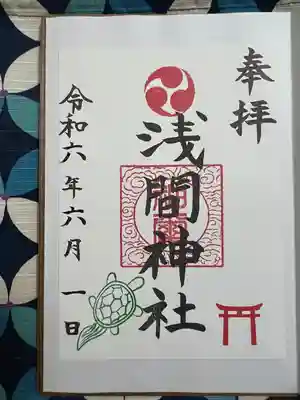 奉拝
浅間神社
令和六年六月一日